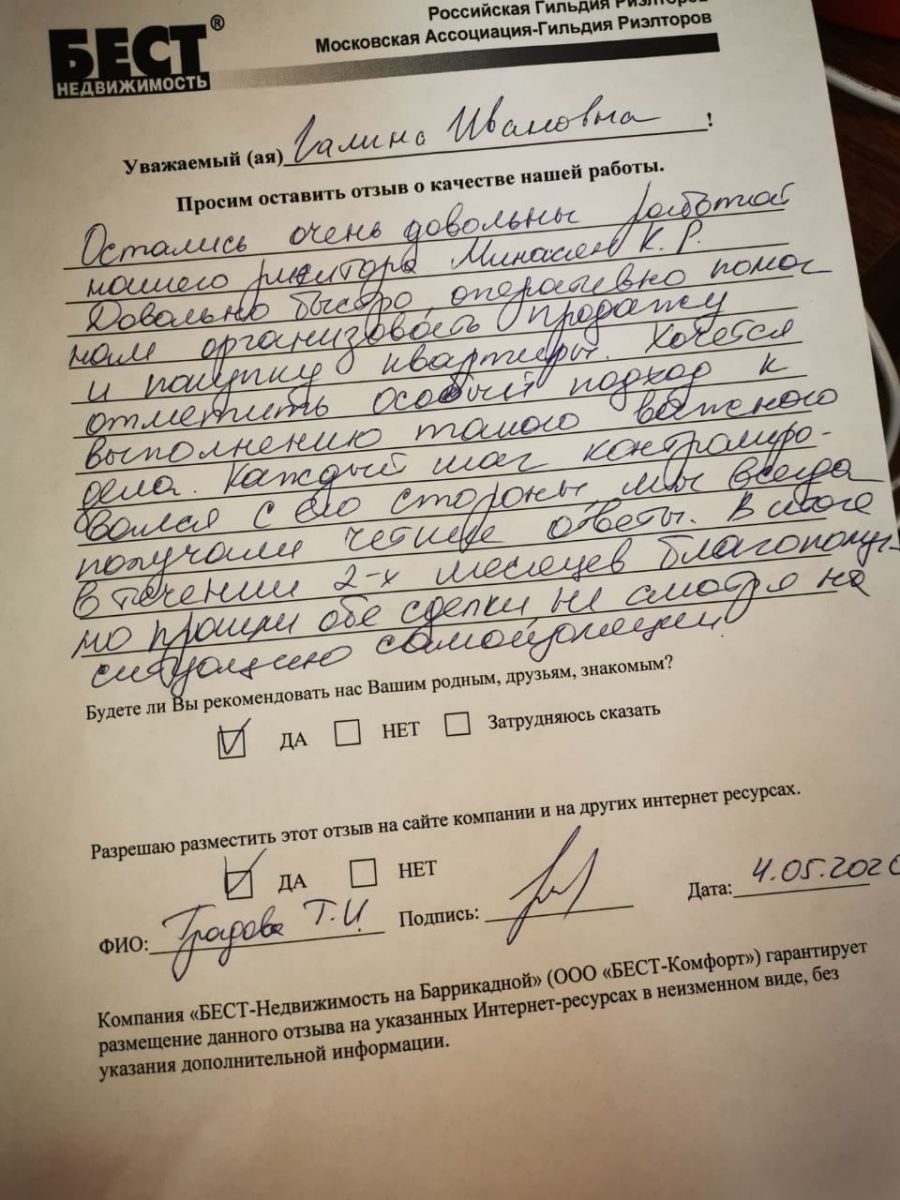 Российская Гильдия Риэлторов
Московская Ассоциация-Гильдия Риэлторов
БЕСТ®
НЕДВИЖИМОСТЬ
Уважаемый (ая) Галина Ивановна !
Просим оставить отзыв о качестве нашей работы.
Остались очень довольны работой
нашего риелтора Минасян К. Р.
Довольно быстро, оперативно помог
нам организовать продажу
и покупку квартиры. Хочется
отметить особый подход к
выполнению такого важного
дела. Каждый шаг контролиро-
вался с его стороны, мы всегда
получали четкие ответы. В итоге
в течении 2-х месяцев благополуч-
но прошли обе сделки не смотря на
ситуацию самоизоляции.
Будете ли Вы рекомендовать нас Вашим родным, друзьям, знакомым?
ДА НЕТ Затрудняюсь сказать
Разрешаю разместить этот отзыв на сайте компании и на других интернет ресурсах.
ДА НЕТ
ФИО: Градова Т.И. Подпись: Дата: 4.05.2020
Компания «БЕСТ-Недвижимость на Баррикадной» (ООО «БЕСТ-Комфорт») гарантирует
размещение данного отзыва на указанных Интернет-ресурсах в неизменном виде, без
указания дополнительной информации.